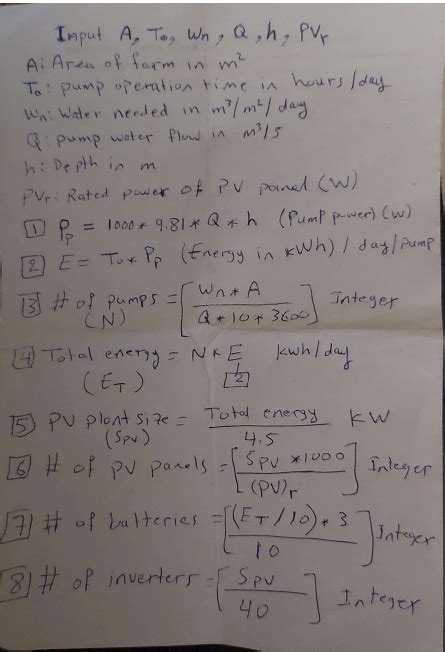 Input A, To, Wn, Q, h, PVr
A: Area of farm in m²
To: pump operation time in hours/day
Wn: Water needed in m³/m²/day
Q: pump water flow in m³/s
h: Depth in m
PVr: Rated power of PV panel (W)
1 Pp = 1000 * 9.81 * Q * h (Pump power) (W)
2 E = To * Pp (Energy in kWh)/day/pump
3 # of pumps = [Wn * A / Q * 10 * 3600] Integer
(N)
4 Total energy = N * E kwh/day
(ET) 2
5 PV plant size = Total energy / 4.5 KW
(Spv)
6 # of pv panels = [Spv * 1000 / (PV)r] Integer
7 # of batteries = [(ET/10) * 3 / 10] Integer
8 # of inverters = [Spv / 40] Integer